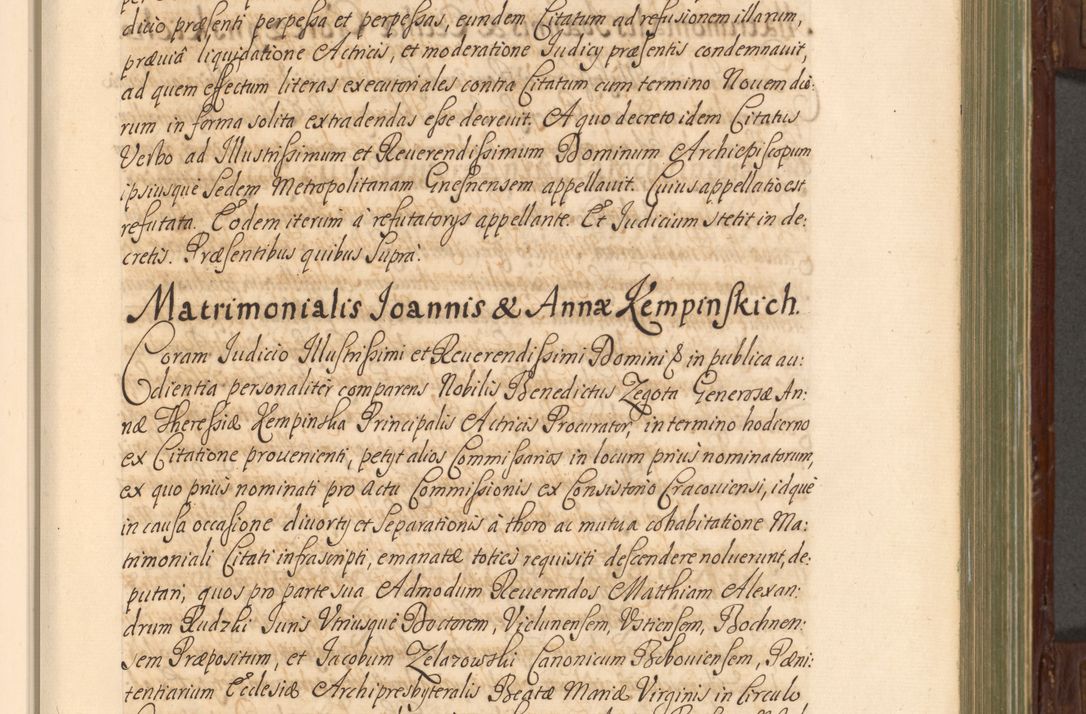 dicio præsenti perpessa et perpessas, eundem Citatum ad refusionem illarum,
præuiâ liquidatione Actricis, et moderatione Iudicÿ præsentis condemnauit,
ad quem effectum literas executoriales contra Citatum cum termino Nouem die:
rum in forma solita extradendas esse decreuit. A quo decreto idem Citatus
Verbo ad Illustrissimum et Reuerendissimum Dominum Archiepiscopum
ipsiusque Sedem Metropolitanam Gnesnensem appellauit. Cuius appellatio est
refutata. Eodem iterum à refutatorÿs appellante. Et Iudicium stetit in de:
cretis. Præsentibus quibus Suprà.
Matrimonialis Ioannis & Annæ Kempinskich.
Coram Iudicio Illustrissimi et Reuerendissimi Domini & in publica au:
dientia personaliter comparens Nobilis Benedictus Zegota Generosæ An:
næ Theressiæ Kempinska Principalis Actricis Procurator, in termino hodierno
ex Citatione prouenienti, petÿt alios Commissarios in locum priùs nominatorum,
ex quo priùs nominati pro Actu Commissionis ex Consistorio Cracouiensi, idque
in causa occasione diuortÿ et Separationis à thoro ac mutua cohabitatione Ma:
trimoniali Citati infrascripti, emanatæ toties requisiti descendere noluerunt, de:
putari, quos pro parte sua Admodum Reuerendos Matthiam Alexan:
drum Rudzki Iuris Vtriusque Doctorem, Vielunensem, Vstiensem, Bochnen:
sem Præpositum, et Iacobum Zelazowski Canonicum Bobouiensem, Pæni:
tentiarium Ecclesiæ Archipresbyteralis Beatæ Mariæ Virginis in Circulo